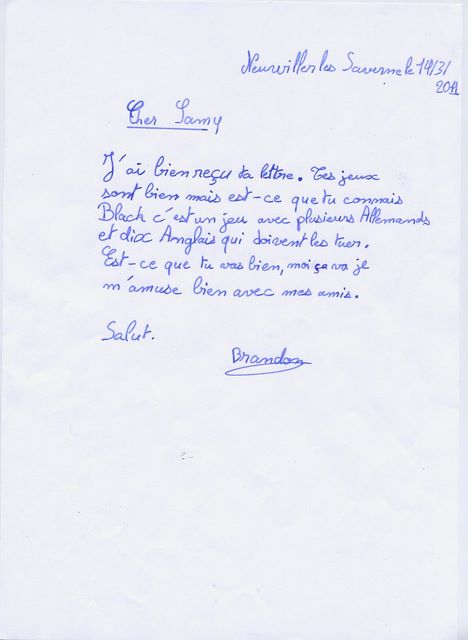 Neuwiller les Saverne le 14/3/
2011
Cher Samy
J'ai bien reçu ta lettre. Tes jeux
sont bien mais est-ce que tu connais
Black c'est un jeu avec plusieurs Allemands
et dix Anglais qui doivent les tuer.
Est-ce que tu vas bien, moi ça va je
m'amuse bien avec mes amis.
Salut.
Brandon